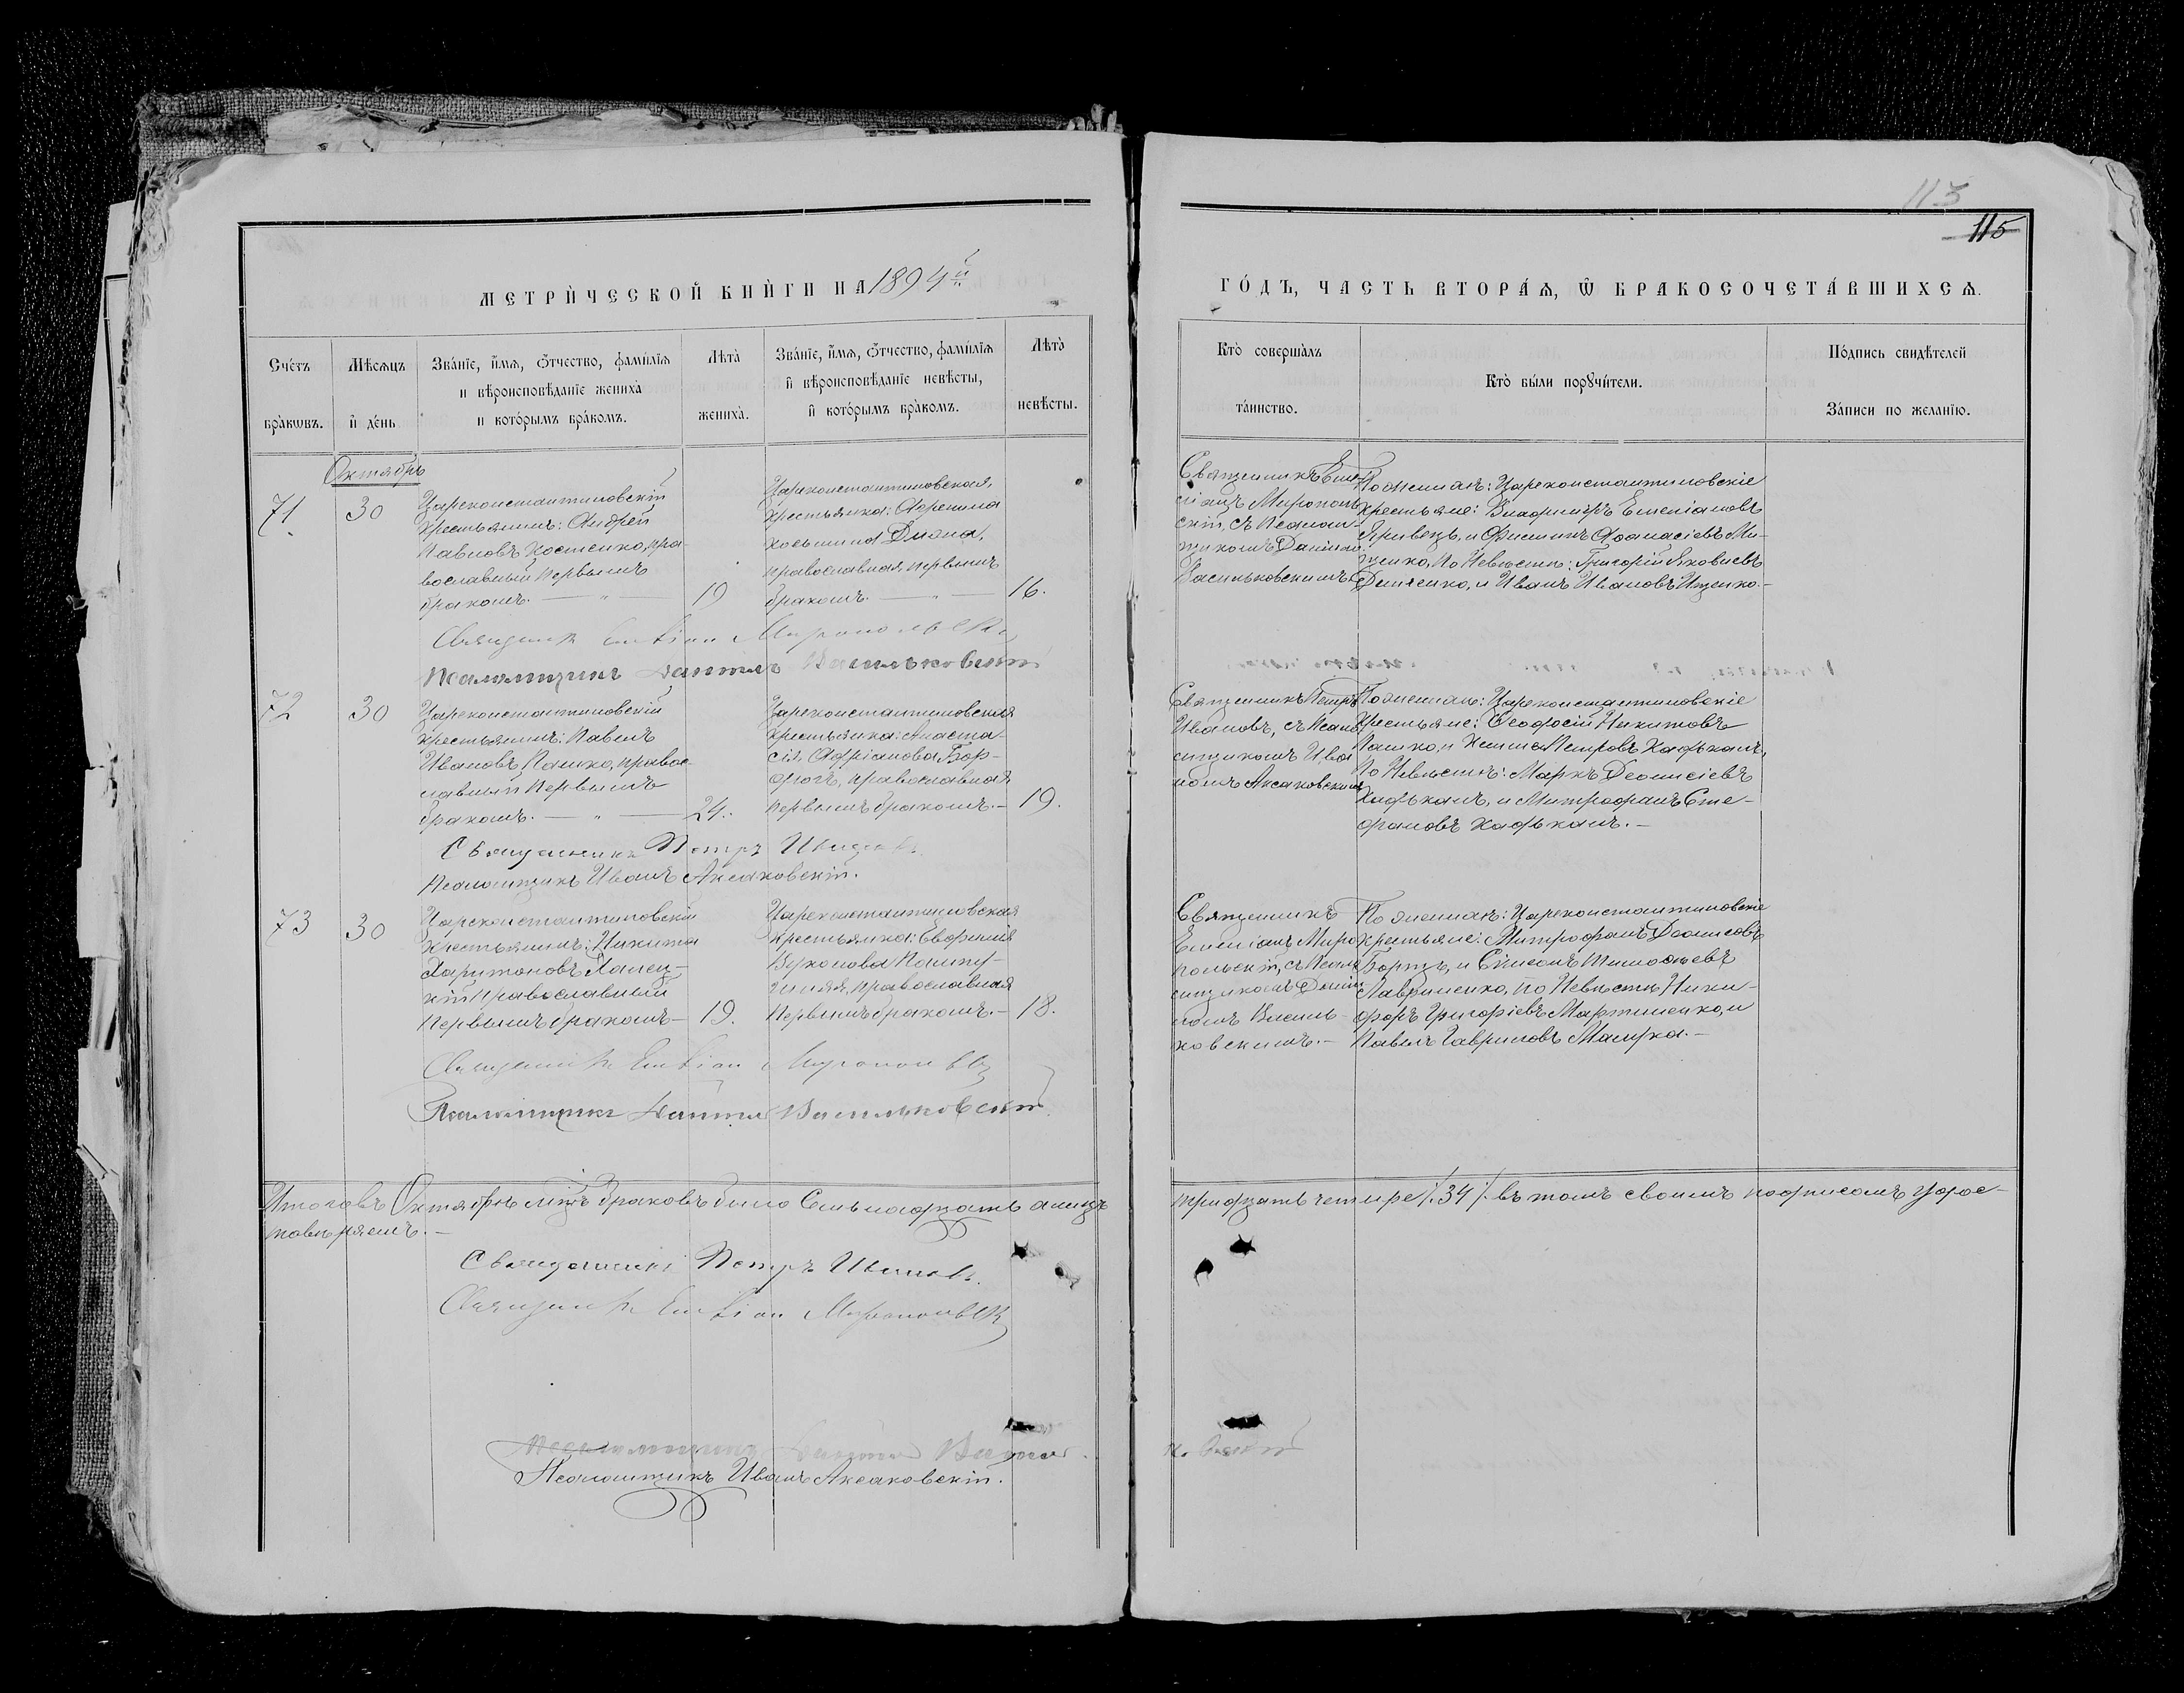 113
115
МЕТРИ́ЧЕСКОЙ КНИ́ГИ НА 1894й
ГО́ДЪ, ЧАСТЬ ВТОРА́Ѧ, Ѡ БРАКОСОЧЕТА́ВШИХСѦ.
Сче́тъ бра́кѡвъ.
Мѣ́сѧцъ и҆ де́нь
Зва́нїе, и҆́мѧ, ѻ҆́тчество, фами́лїѧ
и вѣроисповѣ́данїе жениха̀
и кото́рымъ бра́комъ.
Лѣта̀ жениха̀.
Зва́нїе, и҆́мѧ, ѻ҆́тчество, фами́лїѧ
и҆ вѣроисповѣ́данїе невѣ́сты,
и҆ кото́рымъ бра́комъ.
Лѣта̀ невѣ́сты.
Кто̀ соверша́лъ
та́инство.
Кто̀ бы́ли порꙋчи́тели.
По́дпись свидѣ́телей
За́писи по жела́нїю.
Октябрь
71
30
Цареконстантиновскій
крестьянинъ: Андрей
Павловъ Костенко, пра-
вославный первымъ
бракомъ. — „ —
19
Цареконстантиновская
крестьянка:
Козьмина
православная, первымъ
бракомъ. — „ —
16.
Священникъ
ліанъ Мирополь
скій, съ Псалом-
щикомъ Даніиломъ
Васильковскимъ
По женихѣ: Цареконстантиновскіе
крестьяне: Владиміръ Емеліановъ
Гривецъ, и Филиппъ Аѳанасіевъ Ми-
щенко, По Невѣстѣ: Григорій Яковлевъ
Демяенко, и Иванъ Ивановъ Ищенко.-
Священник Емеліан Миропольск
Псаломщикъ Даніилъ Васильковскій
72
30
Цареконстантиновскій
крестьянинъ: Павелъ
Ивановъ Пашко, правос-
лавный первымъ
бракомъ. — „ —
24.
Цареконстантиновская
крестьянка: Анаста-
сія Адріанова Бор-
православная
первымъ бракомъ.-
19.
Священникъ Петръ
Ивановъ, съ Псалом
щикомъ Ива
номъ Аксаковскимъ
По женихѣ: Цареконстантиновскіе
крестьяне: Ѳеодосій Никитовъ
Пашко, и Петровъ
По Невѣстѣ: Маркъ Деонисіевъ
и Митрофанъ Сте-
фановъ
Священникъ Петръ Ивановъ
Псаломщикъ Иванъ Аксаковскій.
73
30
Цареконстантиновскій
крестьянинъ: Никита
Харитоновъ
православный
первымъ бракомъ-
19.
Цареконстантиновская
крестьянка: Евфимія
Вуколова
православная
первымъ бракомъ.-
18.
Священникъ
Емеліанъ Миро
польскій, съ Псалом
щикомъ Даніи
ломъ Василь-
ковскимъ.-
По женихѣ: Цареконстантиновскіе
крестьяне: Митрофанъ Деонисовъ
и Сѵмеонъ Тимоѳеевъ
Лавриненко, по Невѣстѣ Ники-
форъ Григоріевъ Мартиненко, и
Павелъ Гавриловъ
Священник Емеліан Мирополь
Псаломщикъ Даніилъ Васильковскій
Итого въ Октябрѣ мѣсяцѣ браковъ было Семьнадцать а лицъ
тридцать четыре /.34/. въ томъ своимъ подписомъ удос-
товѣряемъ.-
Священникъ Петръ Ивановъ.
Священник Емеліан Миропольск
Псаломщикъ Даніилъ Василь
ковскій
Псаломщикъ Иванъ Аксаковскій.